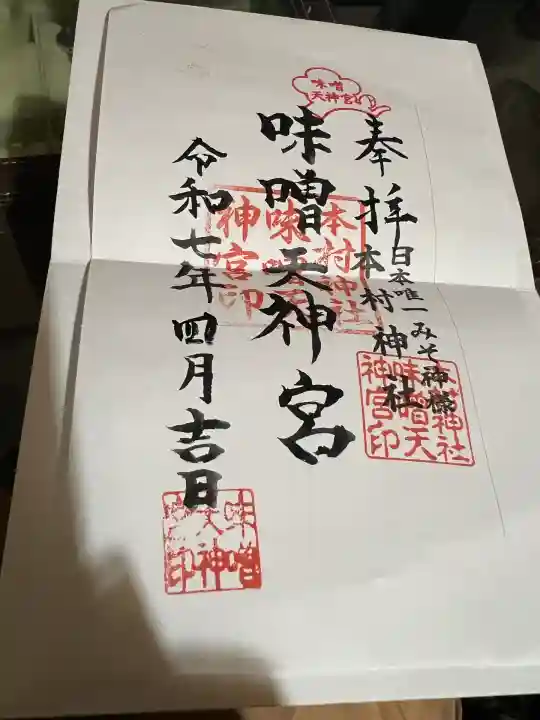 味噌
天神宮
奉拝
日本唯一みそ神様
本村神社
味噌天神宮
令和七年四月吉日
本村神社
味噌天
神宮印
本村神社
味噌天
神宮印
味噌
天神